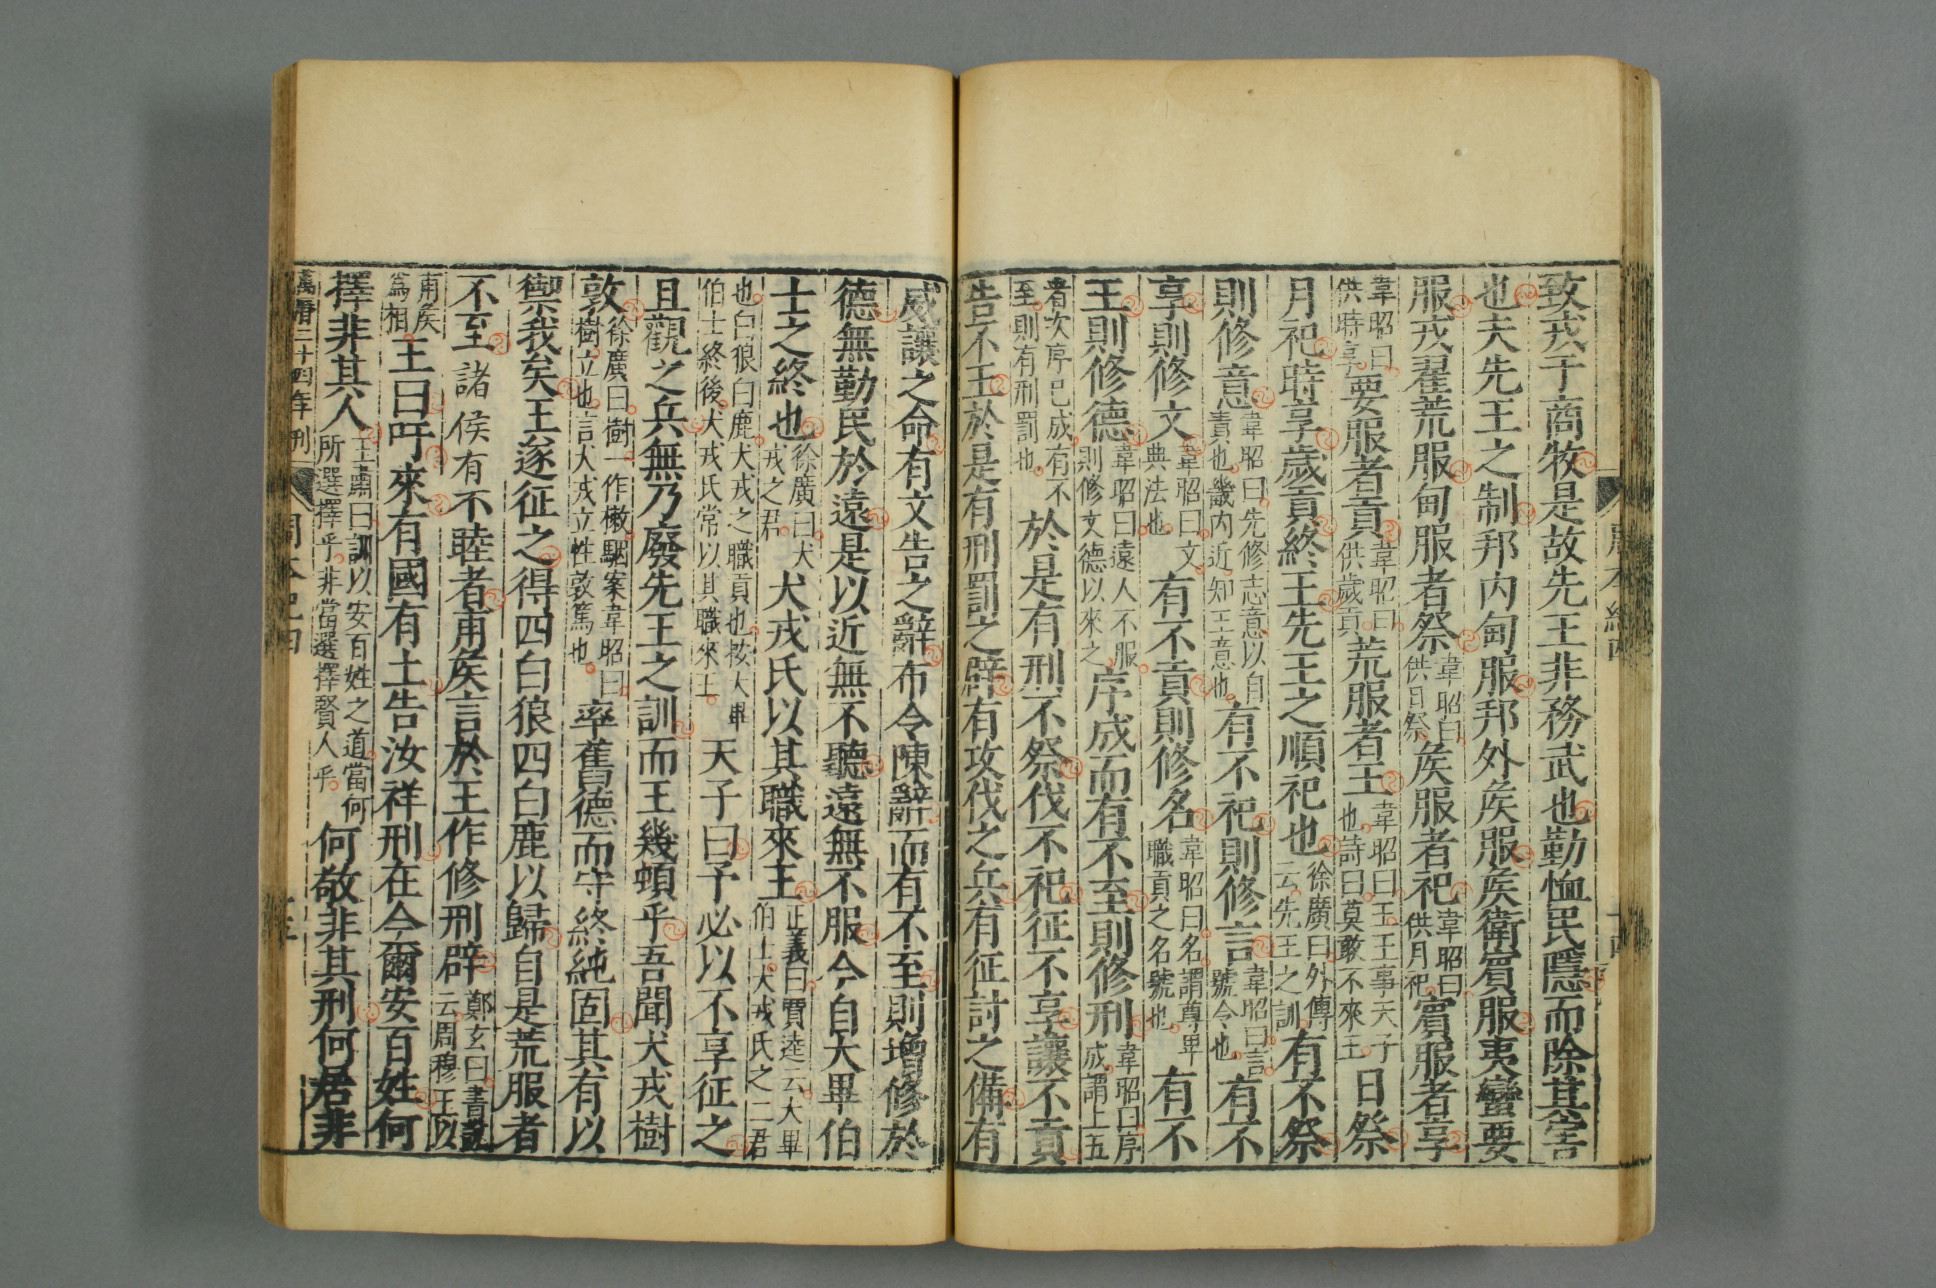 致戎于商牧是故先王非務武也勤恤民隱而除其害
也夫先王之制邦内甸服邦外矦服矦衛賓服夷蠻要
服戎翟荒服甸服者祭韋昭曰供日祭矦服者祀韋昭曰供月祀賓服者享
韋昭曰供時享要服者貢韋昭曰供歲貢荒服者王韋昭曰王王事天子也詩曰莫敢不來王日祭
月祀時享歲貢終王先王之順祀也徐廣曰外傳云先王之訓有不祭
則修意韋昭曰先修志意以自責也畿内近知王意也有不祀則修言韋昭曰言號令也有不
享則修文韋昭曰文典法也有不貢則修名韋昭曰名謂尊卑職貢之名號也有不
王則修德韋昭曰遠人不服則修文德以來之序成而有不至則修刑韋昭曰序成謂上五
者次序已成有不至則有刑罰也於是有刑不祭伐不祀征不享讓不貢
告不王於是有刑罰之辟有攻伐之兵有征討之備有
威讓之命有文告之辭布令陳辭而有不至則增修於
德無勤民於遠是以近無不聽遠無不服今自大畢伯
士之終也徐廣曰犬戎之君犬戎氏以其職來王正義曰賈逵云大畢伯士犬戎氏之二君
也白狼白鹿犬戎之職貢也按大畢伯士終後犬戎氏常以其職來王天子曰予必以不享征之
且觀之兵無乃廢先王之訓而王幾頓乎吾聞犬戎樹
敦徐廣曰樹一作橄駰案韋昭曰樹立也言犬戎立性敦篤也率舊德而守終純固其有以
禦我矣王遂征之得四白狼四白鹿以歸自是荒服者
不至諸侯有不睦者甫矦言於王作修刑辟鄭玄曰書說云周穆王以
甫矦爲相王曰吁來有國有土告汝祥刑在今爾安百姓何
擇非其人王肅曰訓以安百姓之道當何所選擇乎非當選擇賢人乎何敬非其刑何居非
萬曆二十四年刊
周本紀四